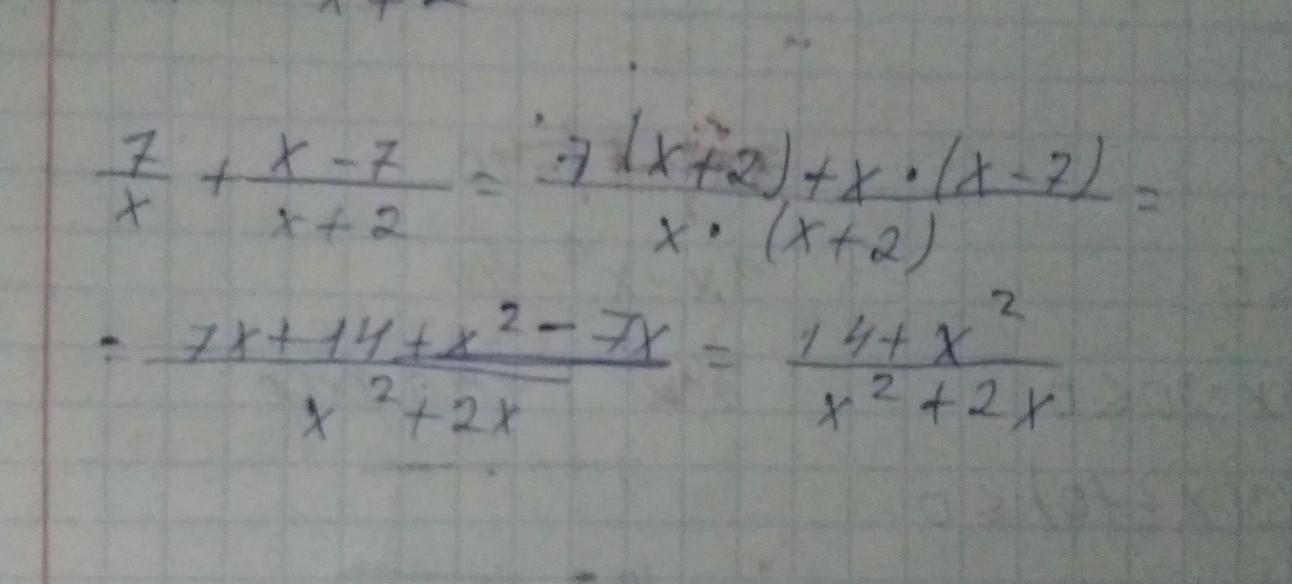 7/x + x-7/x+2 = 7(x+2)+x·(x-7)/x·(x+2) =
= 7x+14+x²-7x/x²+2x = 14+x²/x²+2x